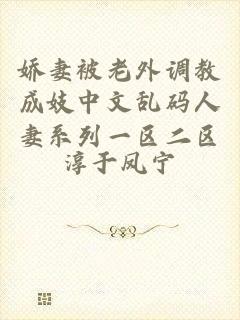 娇妻被老外调教
成妓中文乱码人
妻系列一区二区
淳于凤宁